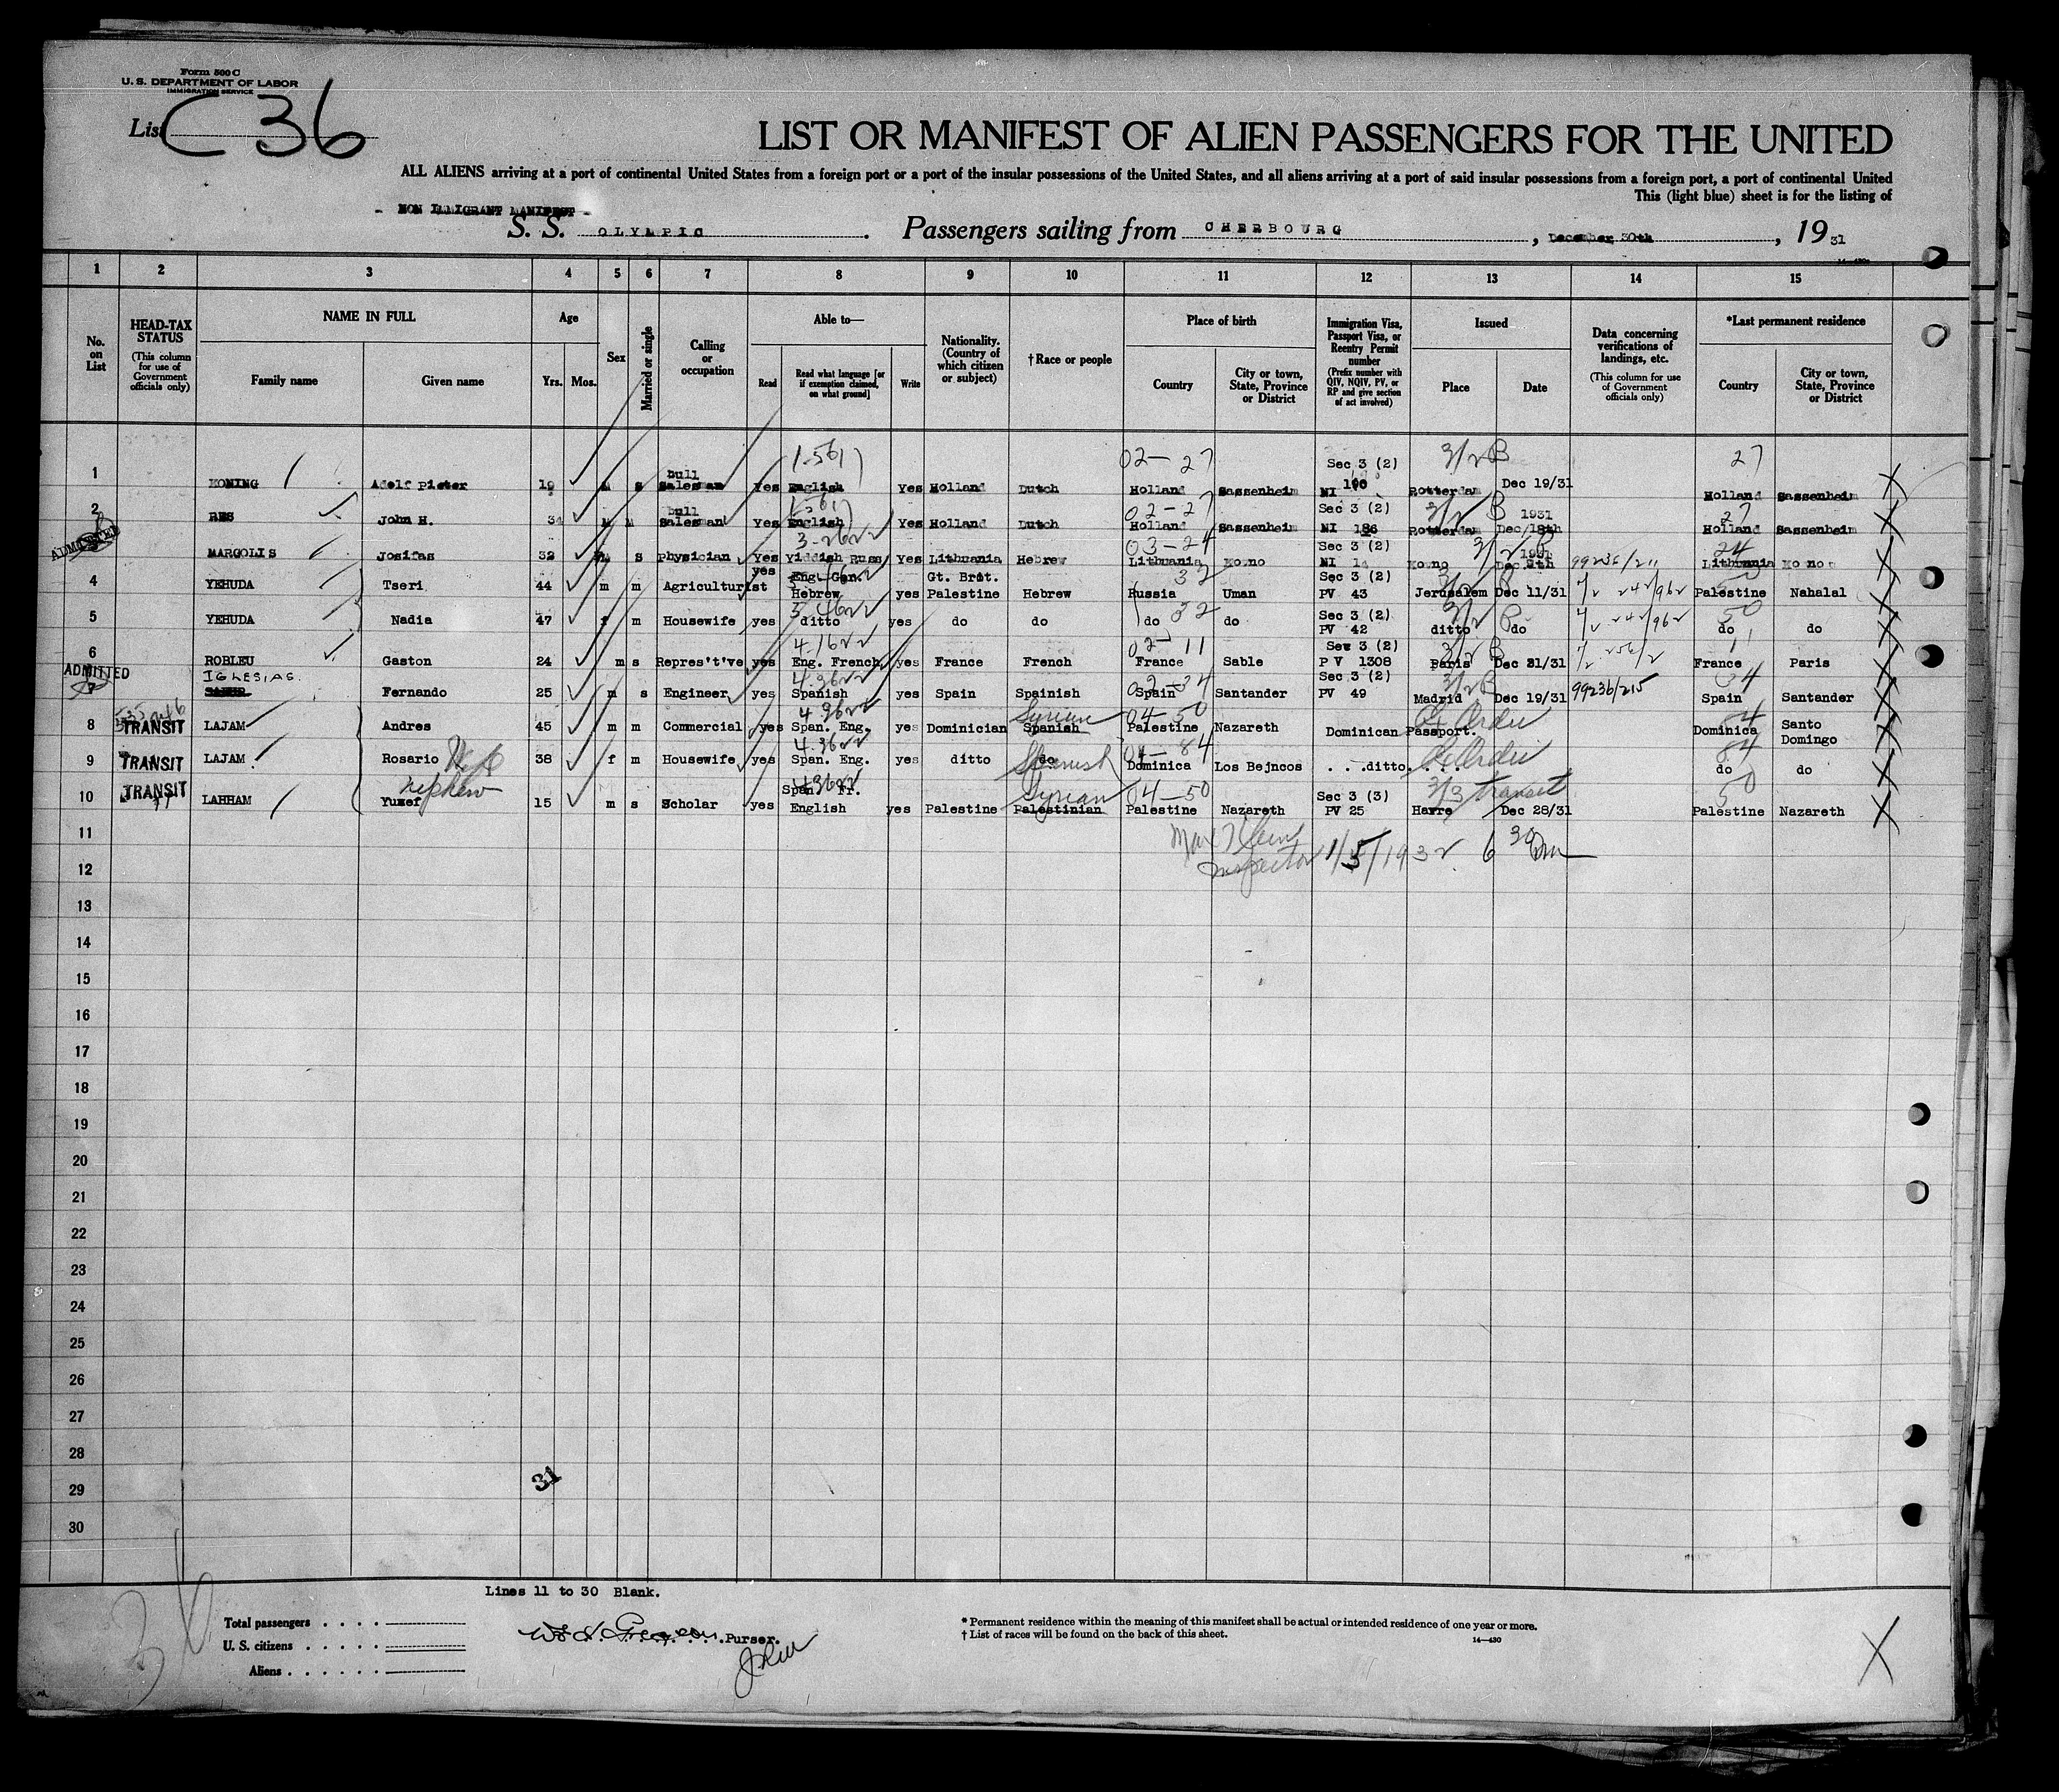 Form 500 C
U. S. DEPARTMENT OF LABOR
IMMIGRATION SERVICE
List C 36
LIST OR MANIFEST OF ALIEN PASSENGERS FOR THE UNITED
ALL ALIENS arriving at a port of continental United States from a foreign port or a port of the insular possessions of the United States, and all aliens arriving at a port of said insular possessions from a foreign port, a port of continental United
This (light blue) sheet is for the listing of
NON IMMIGRANT MANIFEST
S. S. OLYMPIC. Passengers sailing from CHERBOURG, December 30th, 19 31
1 2 3 4 5 6 7 8 9 10 11 12 13 14 15
No. on List
HEAD-TAX STATUS (This column for use of Government officials only)
NAME IN FULL Family name Given name
Age Yrs. Mos.
Sex
Married or single
Calling or occupation
Able to— Read Read what language [or if exemption claimed, on what ground] Write
Nationality. (Country of which citizen or subject)
†Race or people
Place of birth Country City or town, State, Province or District
Immigration Visa, Passport Visa, or Reentry Permit number (Prefix number with QIV, NQIV, PV, or RP and give section of act involved)
Issued Place Date
Data concerning verifications of landings, etc. (This column for use of Government officials only)
*Last permanent residence Country City or town, State, Province or District
1 KONING Adolf Pieter 19 M s bull Salesman Yes English Yes Holland Dutch 02-27 Holland Sassenheim Sec 3 (2) NI 190 3/2 B Rotterdam Dec 19/31 27 Holland Sassenheim X
2 RES John H. 34 M M bull Salesman Yes English Yes Holland Dutch 02-27 Holland Sassenheim Sec 3 (2) NI 186 3/2 B Rotterdam 1931 Dec/18th 27 Holland Sassenheim X
ADMITTED MARGOLIS Josifas 32 M s Physician Yes Yiddish Russ Yes Lithuania Hebrew 03-24 Lithuania Kovno Sec 3 (2) NI 14 3/2 B Kovno 1931 Dec 9th 99236/211 24 Lithuania Kovno X
4 YEHUDA Tseri 44 m m Agriculturist yes Eng. Ger. Hebrew yes Gt. Brit. Palestine Hebrew 32 Russia Uman Sec 3 (2) PV 43 3/2 B Jerusalem Dec 11/31 Palestine Nahalal X
5 YEHUDA Nadia 47 f m Housewife yes ditto yes do do 32 do do Sec 3 (2) PV 42 3/2 B ditto do 50 do do X
6 ROBLEU Gaston 24 m s Repres't've yes 4.1622 Eng. French yes France French 02-11 France Sable Sec 3 (2) P V 1308 3/2 B Paris Dec 21/31 France Paris X
ADMITTED 7 IGLESIAS Fernando 25 m s Engineer yes 4.3622 Spanish yes Spain Spainish 02-34 Spain Santander Sec 3 (2) PV 49 3/2 B Madrid Dec 19/31 99236/215 34 Spain Santander X
8 TRANSIT LAJAM Andres 45 m m Commercial yes 4.3622 Span. Eng. yes Dominician Syrian Spanish 04-50 Palestine Nazareth Dominican Passport. 84 Dominica Santo Domingo X
9 TRANSIT LAJAM Rosario 38 f m Housewife yes 4.3622 Span. Eng. yes ditto do Spanish 04-84 Dominica Los Bejncos . . .ditto. . . 84 do do X
10 TRANSIT LAHHAM nephew Yusef 15 m s Scholar yes Span. Fr. English yes Palestine Syrian Palestinian 04-50 Palestine Nazareth Sec 3 (3) PV 25 3/3 transit Havre Dec 28/31 50 Palestine Nazareth X
11
Inspector 1/5/1932 6 30 Pm
12
13
14
15
16
17
18
19
20
21
22
23
24
25
26
27
28
29
31
30
Lines 11 to 30 Blank.
Total passengers . . . .
U. S. citizens . . . . .
Aliens . . . . . .
Purser.
* Permanent residence within the meaning of this manifest shall be actual or intended residence of one year or more.
† List of races will be found on the back of this sheet.
14—430
X